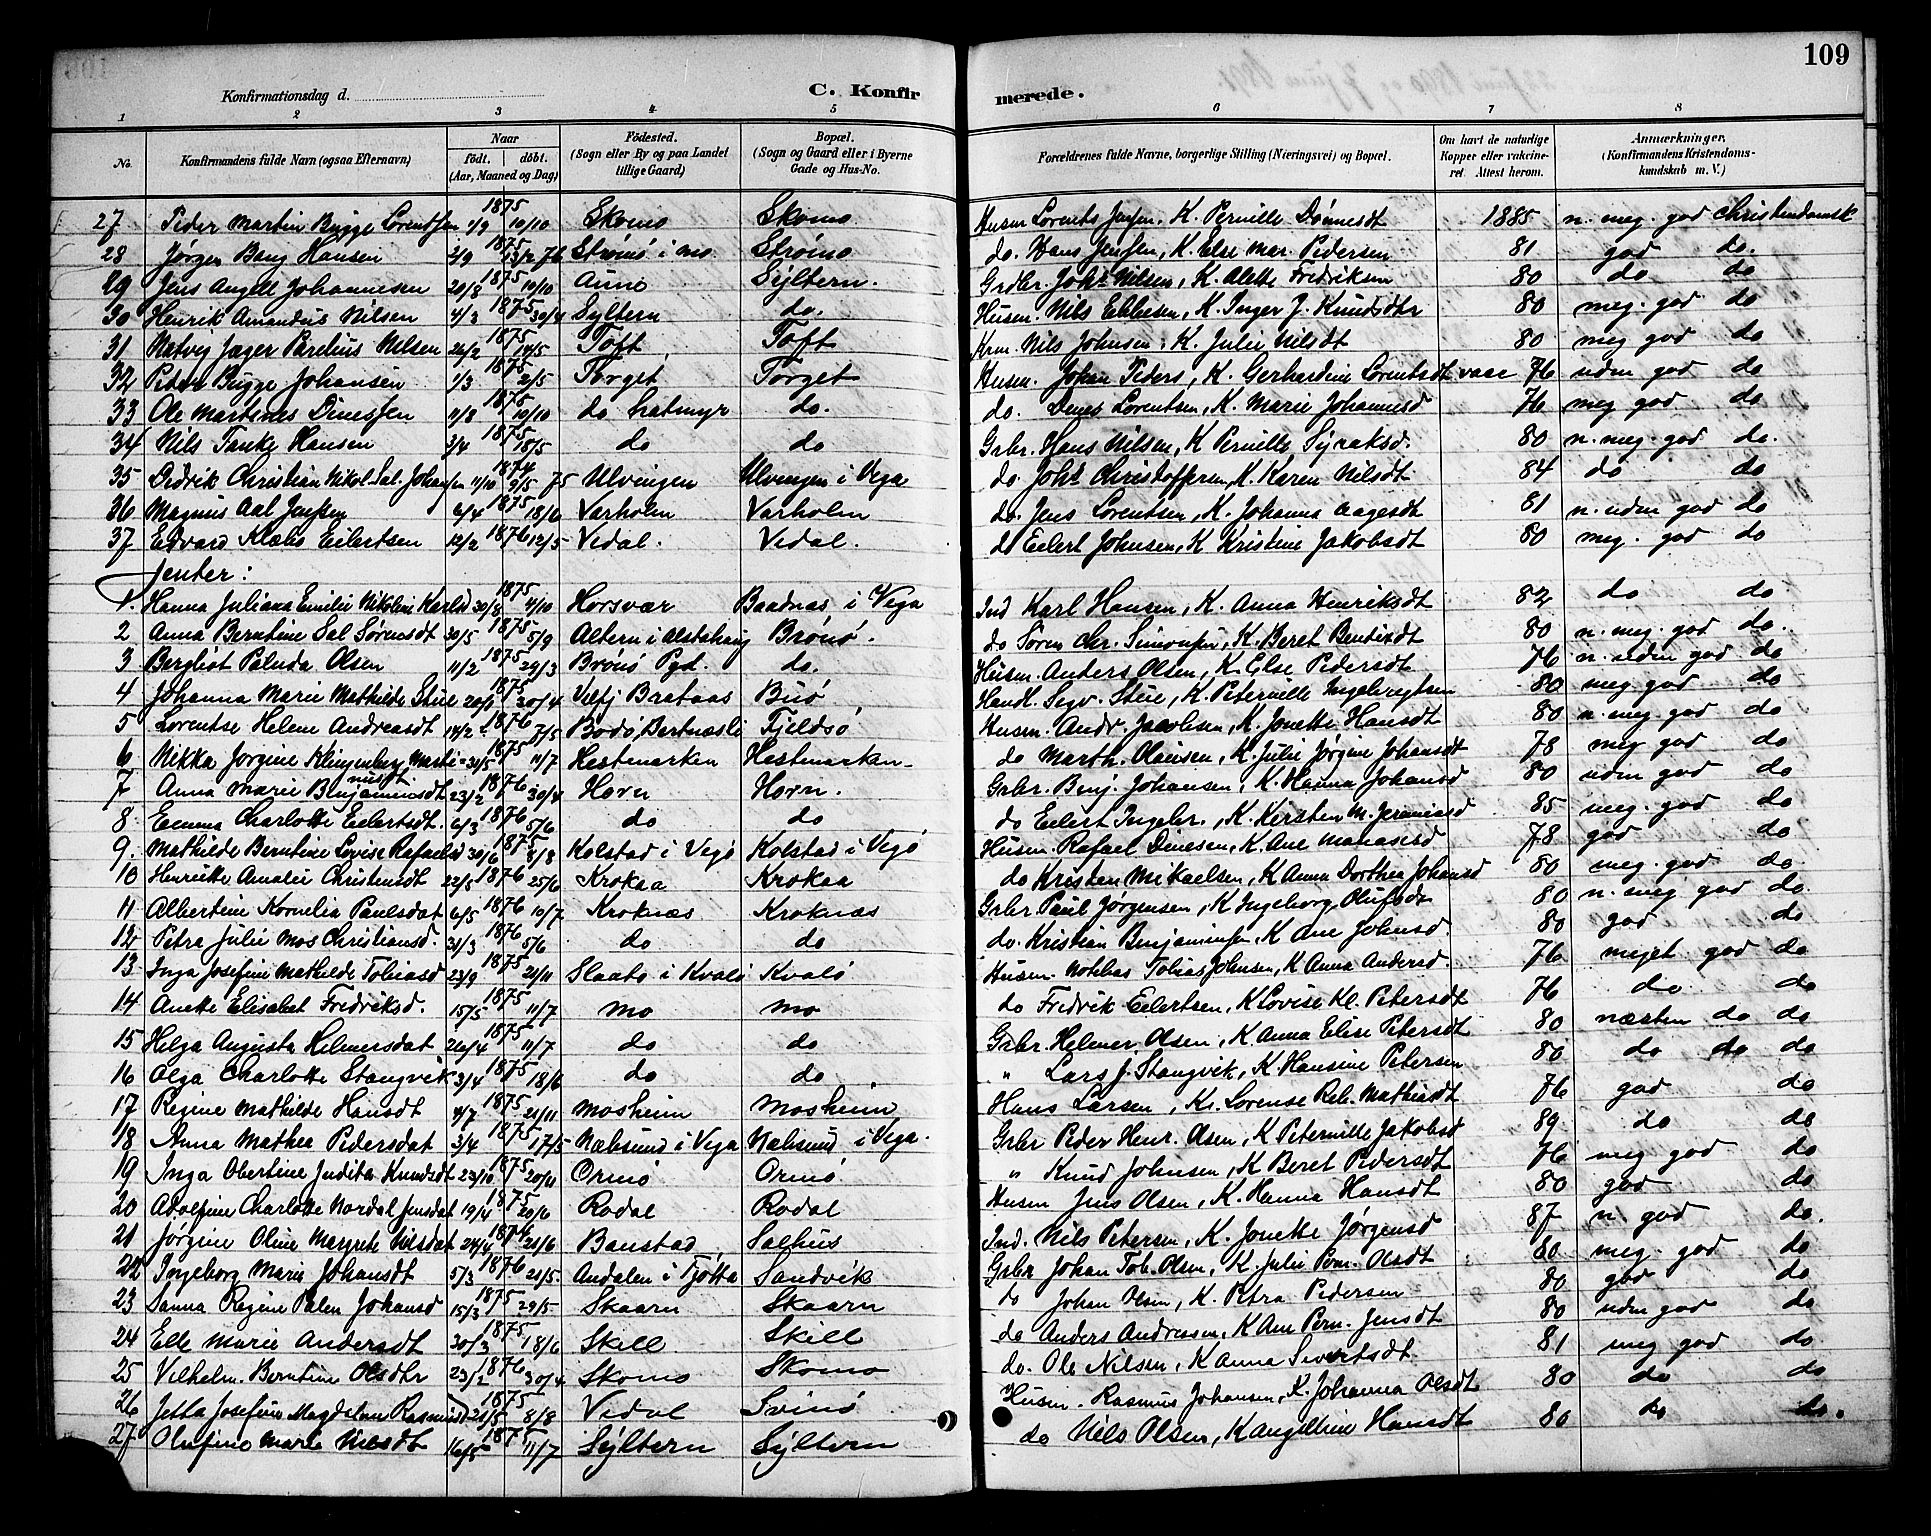 109
Konfirmationsdag d.
C. Konfirmerede.
1 2 3 4 5 6 7 8
No. Konfirmandens fulde Navn (ogsaa Efternavn) Naar født. døbt. (Aar, Maaned og Dag) Fødested. (Sogn eller By og paa Landet tillige Gaard) Bopæl. (Sogn og Gaard eller i Byerne Gade og Hus-No. Forældrenes fulde Navne, borgerlige Stilling (Næringsvei) og Bopæl. Om havt de naturlige Kopper eller vakcineret. Attest herom. Anmærkninger. (Konfirmandens Kristendomskundskab m. V.)
27 Peder Martin Bugge Lorentsen 1/9 1875 10/10 Skomo Skomo Husm Lorents Jensen, K. Pernille Dønnesdt 1885 n. meg. god Christendomsk
28 Jørgen Bang Hansen 2/9 1875 13/2 76 Strømø i mo Strømø do. Hans Jensen, K. Else Mar. Pedersen 81 god do.
29 Jens Angell Johannesen 20/8 1875 10/10 Aune Syltern. Grdbr. Johs Nilsen, K. Alette Fredriksen 80 do do
30 Henrik Amandus Nilsen 4/3 1875 30/4 Syltern do. Husm. Nils Ebbesen, K. Inger J. Knudsdtr 80 meg. god do
31 Natvig Jæger Parelius Nilsen 26/2 1875 14/5 Toft Toft Krm. Nils Johnsen, K. Julie Nilsdt 80 meg god do
32 Peter Bugge Johansen 1/3 1875 2/5 Torget Torget Husm. Johan Peders, K. Gerhardine Lorentsdt vacc 76 udm god do
33 Ole Martines Dinessen 11/8 1875 10/10 do Hatmyr do. do. Dines Lorentsen, K. Marie Johannesd 76 meg god do
34 Nils Tanke Hansen 3/4 1875 18/5 do do Grbr. Hans Nilsen, K Pernille Syraksd. 80 n. meg. god do.
35 Didrik Christian Nikol. Sal. Johansen 11/10 1874 9/5 75 Ulvingen Ulvingen i Vega do Johs Christoffersen, K. Karen Nilsdt 84 do do
36 Magnus Aal Jenssen 6/4 1875 18/6 Varholm Varholm do. Jens Lorentsen, K. Johanna Aagesdt 81 n. udm god do
37 Edvard Klæbo Eilertsen 12/2 1876 12/5 Vedal. Vedal. do Eilert Johnsen, K Kristine Jakobsdt 80 meg. god do
Jenter:
1. Hanna Juliana Emilie Nikoline Karlsd 30/8 1875 4/10 Horsvær Baadnæs i Vega Ind Karl Hansen, K. Anna Henriksdt 82 do do
2 Anna Berntine Sal Sørensdt 30/5 1875 5/9 Altern i Alstahaug Brønø. do Søren Chr. Simonsen, K. Beret Bentsdt 80 n. meg. god do.
3 Bergliot Paluda Olsen 11/2 1875 29/3 Brønø Pgd. do. Husm. Anders Olsen, K. Else Pedersdt 76 n. udm god do
4 Johanna Marie Mathilde Stue 20/1 1875 30/4 Velfj Brataas Buø Handl. Segv. Stue, K. Peternille Ingebregtsen 80 meg god do
5 Lorentse Helene Andreasdt 14/2 1876 7/5 Bodø, Bertnæsli Fjeldsø Husm. Andr. Jacobsen, K. Jonette Hansdt 80 n. meg god do
6 Nikka Jørgine Klingenberg Martinusdt 31/5 1875 11/7 Hestmarken Hestmarken do Marth. Olausen, K. Julie Jørgine Johansdt 78 meg god do
7 Anna Marie Benjaminsdt 23/2 1876 30/4 Horn Horn. Grbr. Benj. Johansen, K. Hanna Johansd 80 udm god do
8 Emma Charlotte Eilertsdt. 6/3 1876 5/6 do do do Eilert Ingebr., K. Kirsten M. Jeremiasd 85 meg. god do
9. Mathilde Berntine Lovise Rafaelsd 30/6 1875 8/8 Kolstad i Vegø Kolstad i Vegø Husm. Rafael Dinesen, K. Ane Manasesd 78 god do
10 Henriette Amalie Christensdt 22/5 1876 25/6 Krokaa Krokaa do Kristen Mikaelsen, K Anna Dorthea Johansd 80 meg. god do.
11 Albertine Kornelia Paulsdat 6/5 1876 10/7 Kroknæs Kroknæs Grbr Paul Jørgensen, K Ingeborg Olufsdr 80 n. meg god do.
12 Petra Julie Mos Christiansd. 31/3 1876 5/6 do do do. Kristian Benjaminsen, K Ane Johnsd. 80 god do
13. Inga Josefine Mathilde Tobiasd 23/9 1875 21/11 Slaatø i Kvalø Kvalø Husm. Tobias Johnsen, K Anna Andersd. 76 meget god do
14 Anette Elisabet Fredriksd. 15/5 1875 11/7 mo mo do Fredrik Eilertsen, K Lovise Kl. Petersdt 76 do do
15 Helga Augusta Helmersdat 26/4 1875 11/7 do do Grbr. Helmer Olsen, K Anna Elise Petersdt 80 næsten do do
16 Olga Charlotte Stangvik 3/4 1875 18/6 do do " Lars J. Stangvik, K. Hansine Petersen 80 do do do
17 Regine Mathilde Hansdt 4/7 1875 21/11 Mosheim Mosheim Hans Larsen, K. Lorense Reb. Mathiasdt 76 god do
18 Anna Mathea Pedersdat 3/4 1875 17/5 Næbsund i Vega Næbsund i Vega. Grbr Peder Henr. Olsen, K Peternille Jakobsd 89 do do
19 Inga Obertine Judita Knudsdt 23/10 1875 20/11 Ormø Ormø " Knud Johnsen, K Beret Pedersdt 76 meg god do
20 Adolfine Charlotte Nordal Jensdat 19/4 1875 20/6 Rodal Rodal Husm Jens Olsen, K. Hanna Hansdt 80 god do
21 Jørgine Oline Margrete Nilsdat 24/4 21/6 Baustad Salhus Ind. Nils Petersen, K. Jonette Jørgensd 87 n god do.
22 Ingeborg Marie Johansdt 5/3 1876 21/5 Andalen i Tjøtta Sandvik Grbr Johan Tob. Olsen, K. Julie Pern. Olsdt 80 meg. god do
23 Sanna Regine Palen Johansd 15/3 1875 29/5 Skaarn Skaarn do Johan Olsen, K. Petra Pedersen 80 god do
24 Elle Marie Andersdt 30/3 1875 18/6 Skill Skill do Anders Andreasen, K Ane Pern. Jensdt 80 udm god do
25 Vilhelm. Berntine Olsdtr 23/2 1876 30/4 Skomo Skomo do. Ole Nilsen, K Anna Sivertsdt. 81 meg god do
26 Jetta Josefine Magdalena Rasmusd 21/5 1875 8/8 Vedal Svinø Husm. Rasmus Johansen, K. Johanna Olsdt 80 do do
27 Olufine Marie Nilsdt 16/5 1875 11/7 Syltern Syltern do Nils Olsen, K Angelline Hansdt 80 do do.